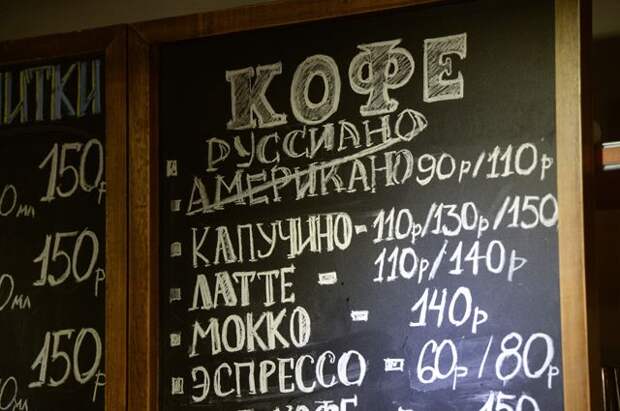 ИТКИ
150р
0 мл
150р
0 мл
150р
КОФЕ
РУССИАНО
АМЕРИКАНО 90р/110р
КАПУЧИНО - 110р/130р/150
ЛАТТЕ - 110р/140р
МОККО - 140р
ЭСПРЕССО - 60р/80р
КОФЕ 150